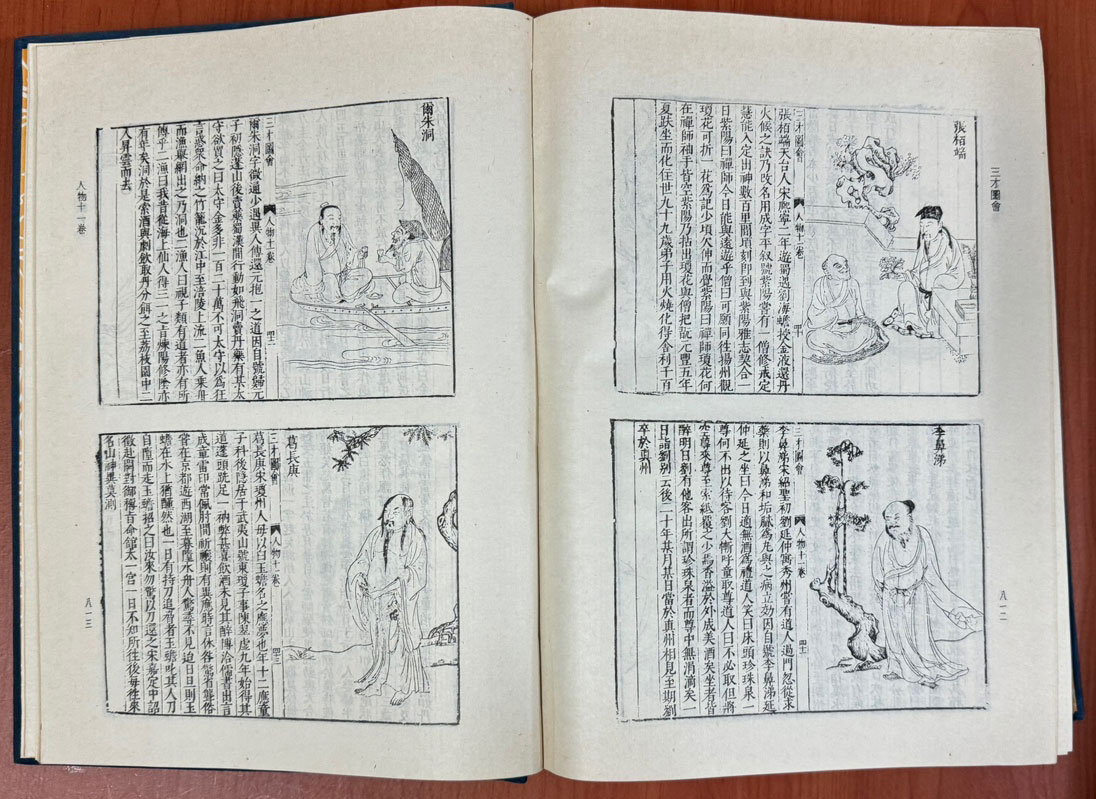 三才圖會
張栢端
三才圖會 人物十一卷 四十
張栢端天台人宋熙寧二年遊蜀遇劉海蟾授金液還丹
火候之訣乃改名用成字平叔號紫陽嘗有一僧修戒定
慧能入定出神數百里間頃刻即到與紫陽雅志契合一
日紫陽曰禪師今日能與遠遊乎僧曰可願同往揚州觀
瓊花可折一花為記少頃欠伸而覺紫陽曰禪師瓊花何
在禪師袖手皆空紫陽乃拈出瓊花與僧把翫元豐五年
夏趺坐而化住世九十九歲弟子用火燒化得舍利千百
李鼻涕
三才圖會 人物十一卷 四十一
李鼻涕宋紹聖初劉延仲寓秀州嘗有道人過門忽從求
藥則以鼻涕和垢膩為丸與之病立効因自號李鼻涕延
仲延之坐曰今日適無酒為禮道人笑曰床頭珍珠泉一
尊何不出以待客劉大慚呼童取尊道人曰不必取但將
空尊來尊至索紙覆之少焉香溢於外成美酒矣坐者皆
醉明日劉有他客出所謂珍珠泉者而尊中無涓滴矣一
日詣劉別云後二十年某月某日當於真州相見至期劉
卒於真州
八一二
爾朱洞
三才圖會 人物十一卷 四十二
爾朱洞字微通少遇異人傳還元抱一之道因自號歸元
子初隱蓬山後賣藥蜀漢間行動如飛洞賣丹藥有某太
守欲買之曰太守金多非一百二十萬不可太守以為狂
言惑衆命納之竹籠沉於江中至涪陵上流二魚人乘舟
而漁舉網出之乃洞也二漁人曰視子類有道者亦有所
傳乎二漁曰我昔從海上仙人得三一之旨煉陽修陰亦
有年矣洞於是索酒與劇飲取丹分餌之至荔枝園中二
人昇雲而去
葛長庚
三才圖會 人物十一卷 四十三
葛長庚宋瓊州人母以白玉蟾名之應夢也年十二應童
子科後隱居于武夷山號東瓊子事陳翠虛九年始得其
道蓬頭跣足一衲弊甚喜飲酒未見其醉博洽儒書出言
成章雷印常佩肘間祈禳則有異應時言休咎驚省聾俗
嘗在京都遊西湖至暮墮水舟人驚尋不見達旦則玉
蟾在水上猶醺然也一日有持刀追脅者玉蟾叱其人刀
自墮而走玉蟾招之曰汝來勿驚以刀還之宋嘉定中詔
徵赴闕對御稱旨命館太一宮一日不知所往後每往來
名山神異莫測
人物十一卷
八一三